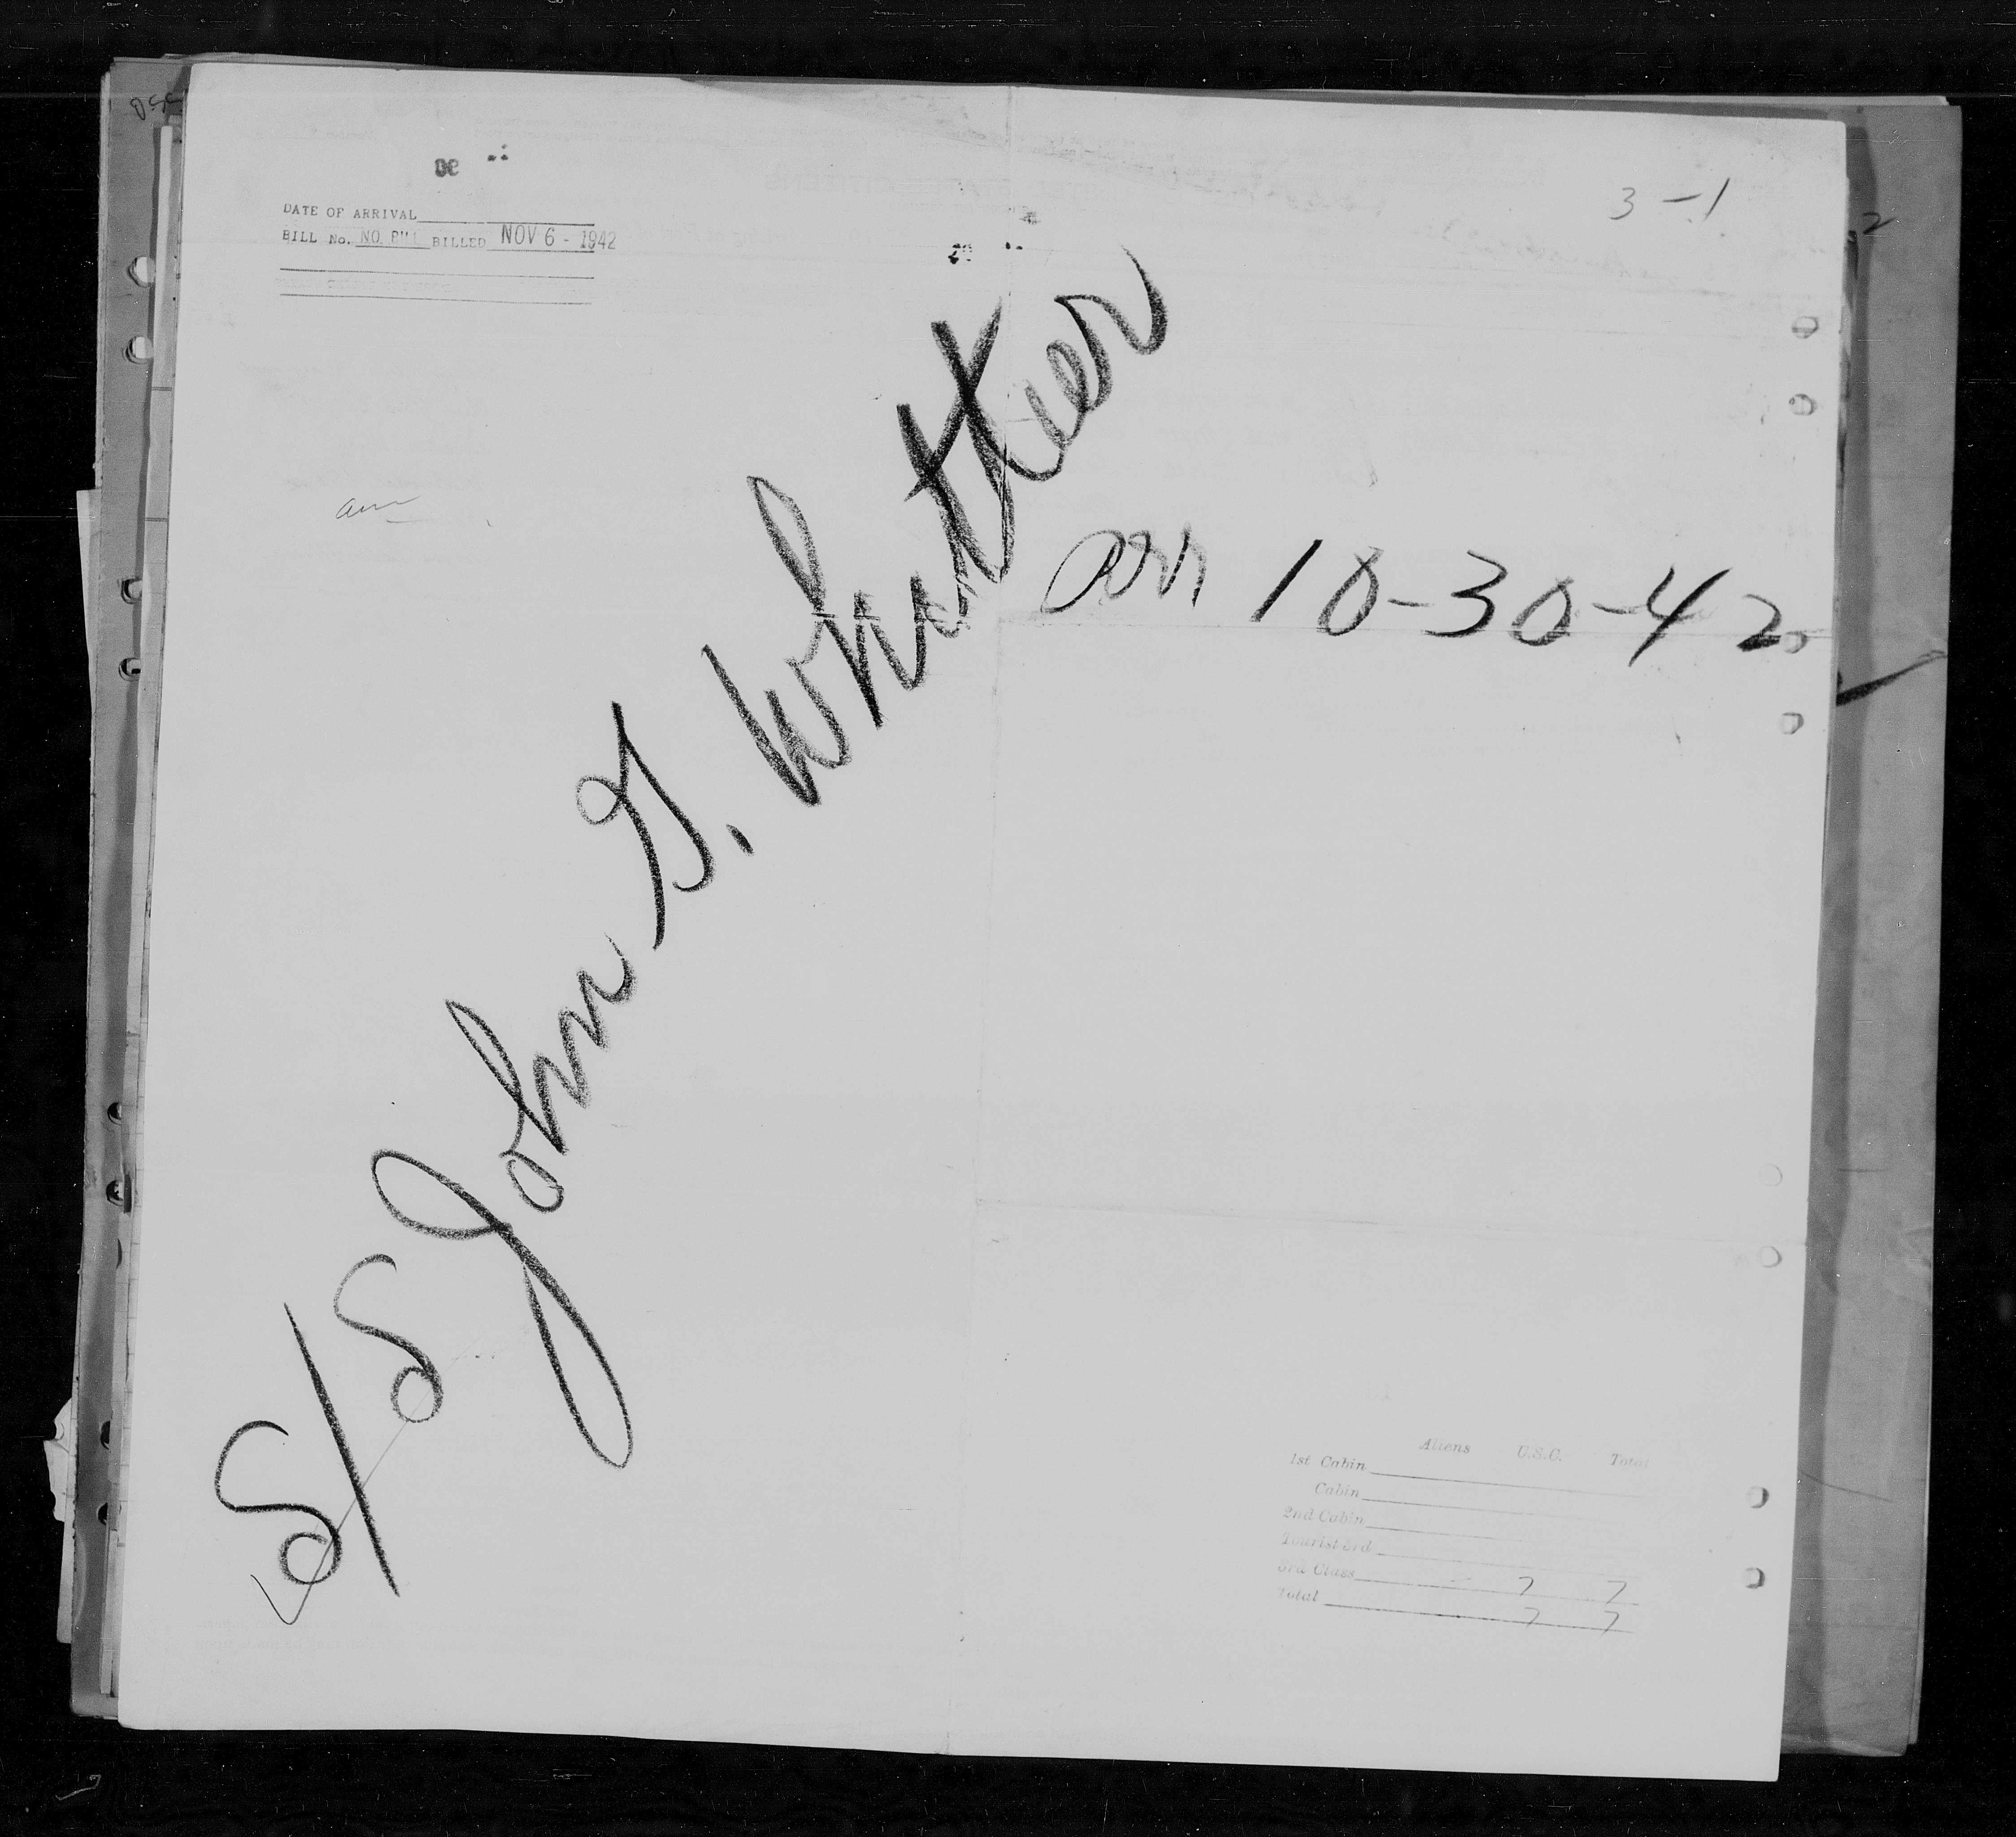 3-1
DATE OF ARRIVAL
BILL No. NO BILL BILLED NOV 6 - 1942
S/S John G. Whittier
arr 10-30-42
Aliens U.S.C. Total
1st Cabin
Cabin
2nd Cabin
Tourist 3rd
3rd Class 7 7
Total 7 7